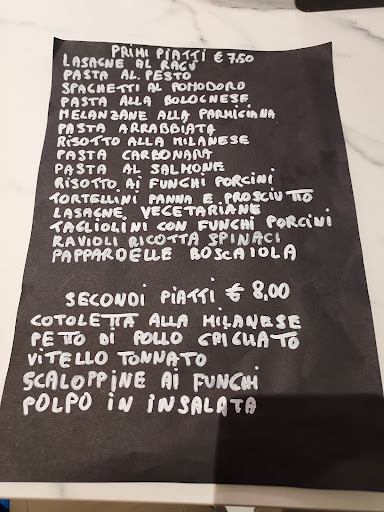 PRIMI PIATTI € 7.50
LASAGNE AL RAGÙ
PASTA AL PESTO
SPAGHETTI AL POMODORO
PASTA ALLA BOLOGNESE
MELANZANE ALLA PARMIGIANA
PASTA ARRABBIATA
RISOTTO ALLA MILANESE
PASTA CARBONARA
PASTA AL SALMONE
RISOTTO AI FUNGHI PORCINI
TORTELLINI PANNA E PROSCIUTTO
LASAGNE VEGETARIANE
TAGLIOLINI CON FUNGHI PORCINI
RAVIOLI RICOTTA SPINACI
PAPPARDELLE BOSCAIOLA
SECONDI PIATTI € 8,00
COTOLETTA ALLA MILANESE
PETTO DI POLLO GRIGLIATO
VITELLO TONNATO
SCALOPPINE AI FUNGHI
POLPO IN INSALATA